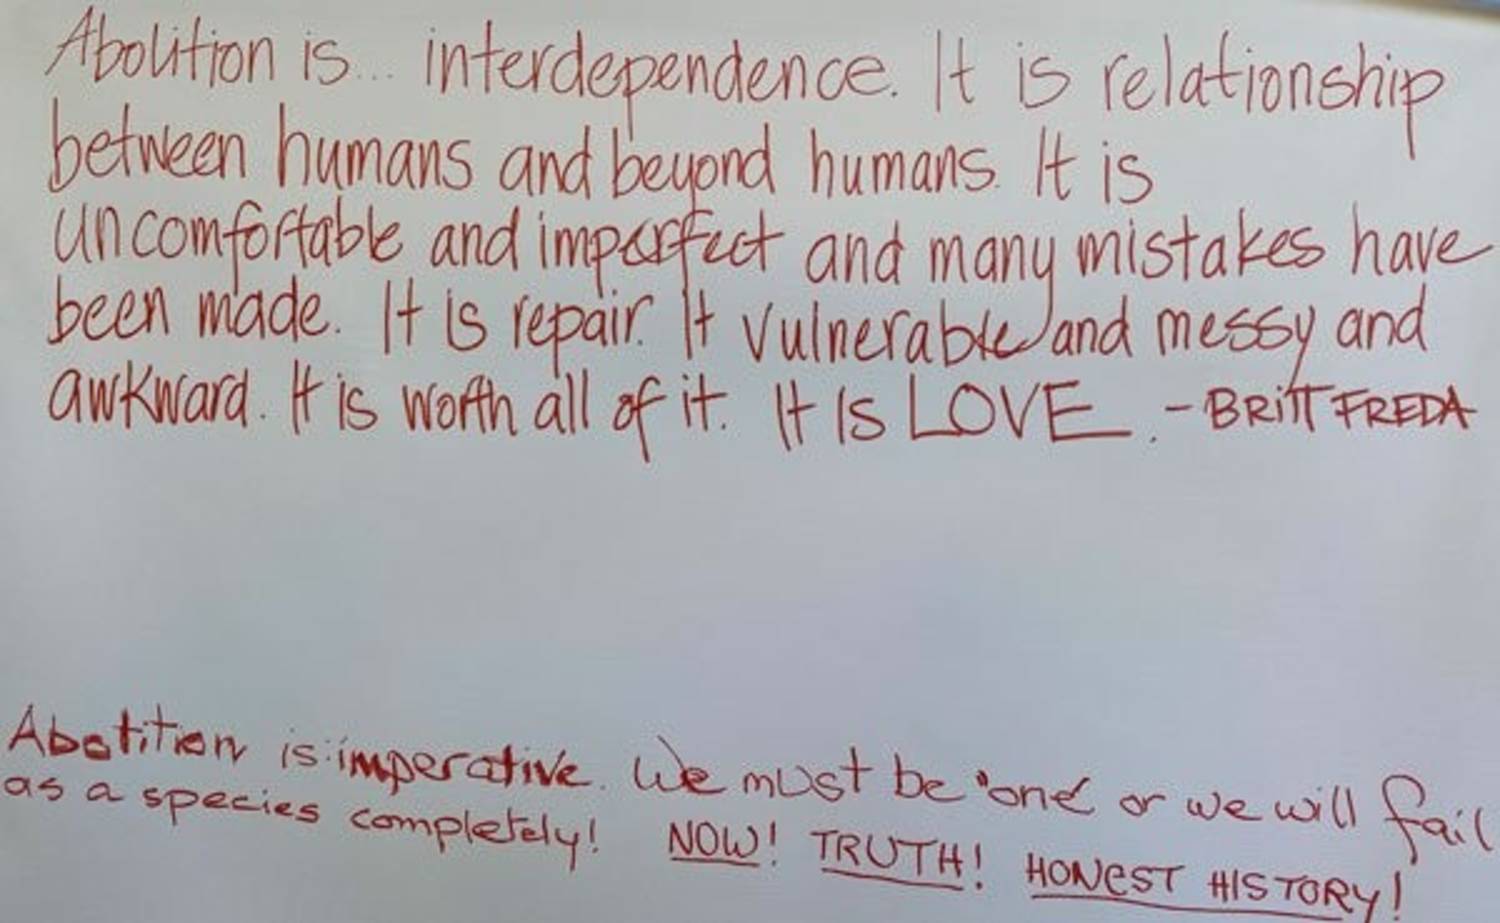 Abolition is... interdependence. It is relationship
between humans and beyond humans. It is
uncomfortable and imperfect and many mistakes have
been made. It is repair. It vulnerable and messy and
awkward. It is worth all of it. It IS LOVE. - BRITT FREDA
Abolition is imperative. We must be "one" or we will fail
as a species completely! NOW! TRUTH! HONEST HISTORY!